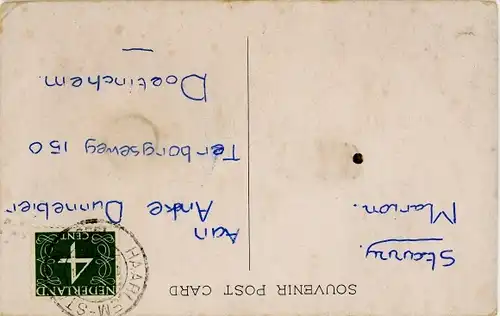 SOUVENIR POST CARD
Starry
Marion.
HAARLEM-ST
NEDERLAND
4
CENT
Aan
Anke Dunnebier
Terborgseweg 150
Doetinchem.